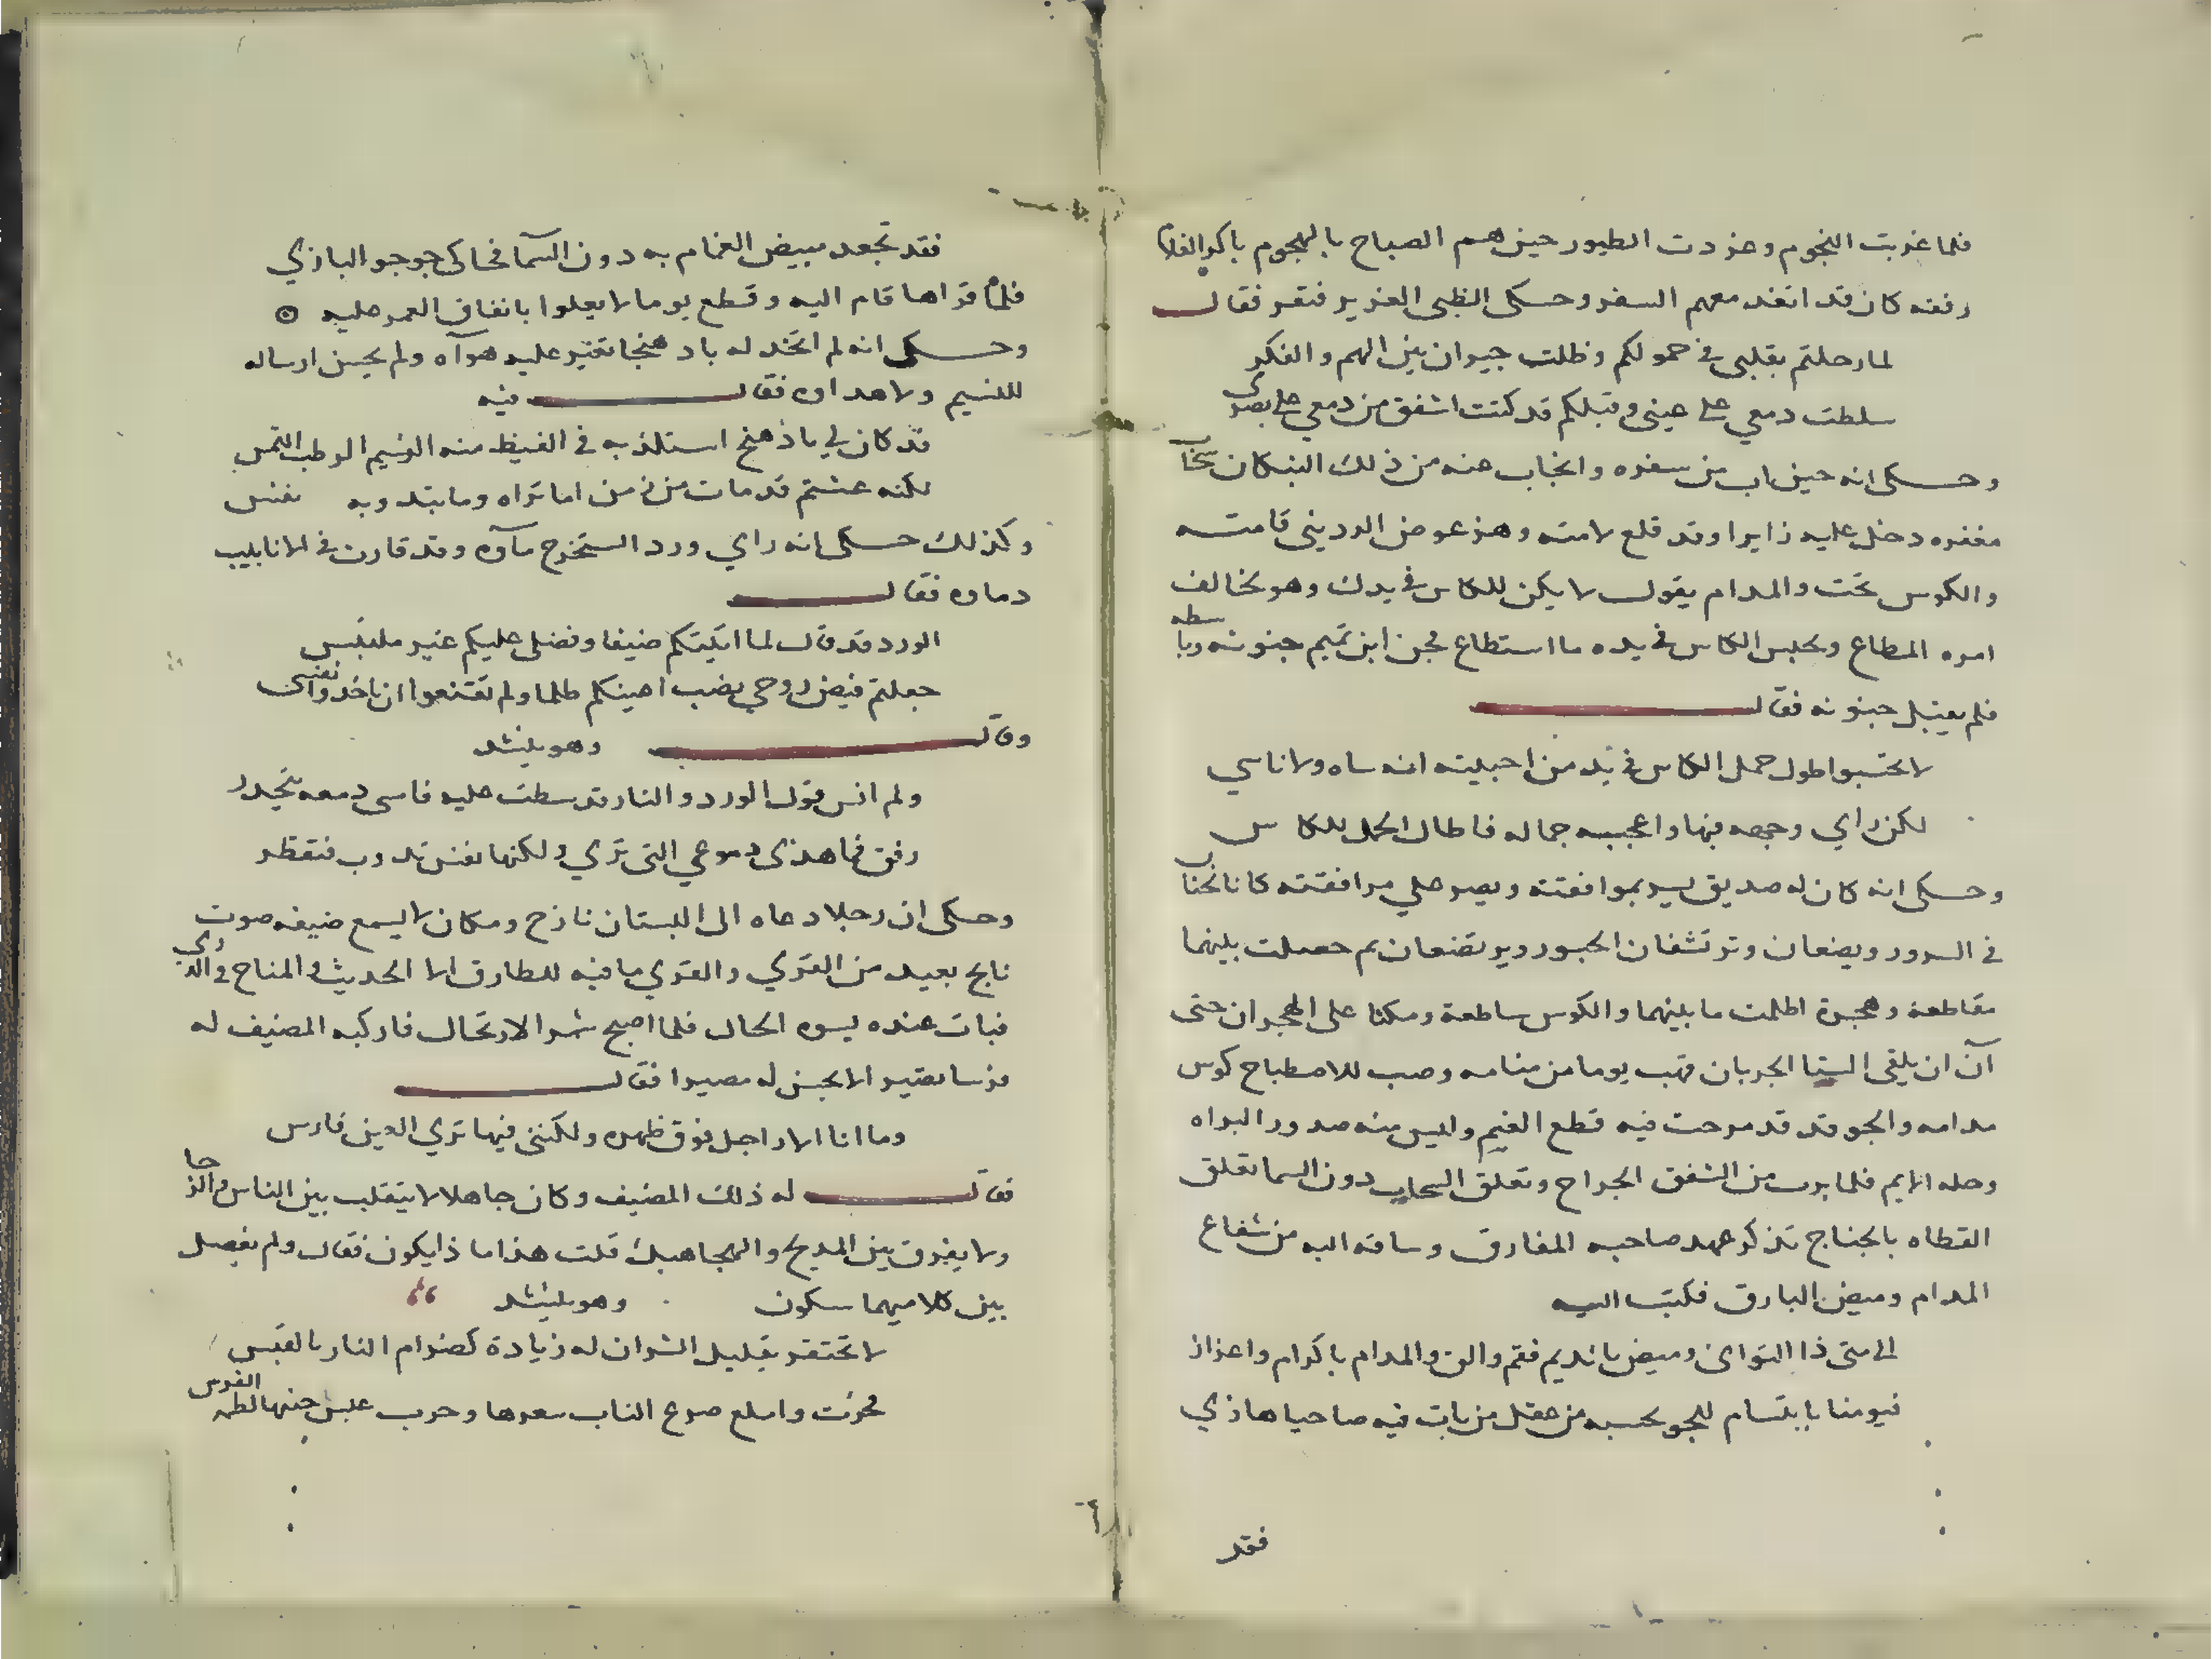 فلما غربت النجوم وغردت الطيور حين هم الصباح بالهجوم باكر الفلاة
رفقه كان قد انفذ معهم السفر وحكى الظبى الغرير فنفر فقال
لما رحلتم بقلبى فى حمولكم وظلت حيران بين الهم والفكر
سلطت دمعي على عينى وقبلكم قد كنت اشفق من دمعي على بصرى
وحكى انه حين اب من سفره وانجاب عنه من ذلك البنكان سحاب
مغفره دخل عليه زايرا وقد قلع لامته وهز عوض الردينى قامته
والكوس تحث والمدام يقول لا يكن للكاس فى يدك وهو يخالف
امره المطاع ويحبس الكاس فى يده ما استطاع فجن ابن تميم جنونه وباسطه
فلم يقبل جنونه فقال
لا تحسبوا طول حمل الكاس فى يد من احببته انه ساه ولا ناسي
لكن راي وجهه فيها واعجبه جماله فاطال الحمل للكاس
وحكى انه كان له صديق يسر بموافقته ويصبر على مرافقته كانا نجنان
فى السرور ويضعان وترتشفان الحبور ويرتضعان ثم حصلت بينهما
مقاطعة وهجرة اظلمت ما بينهما والكوس ساطعة ومكثا على الهجران حتى
آن ان يلقى الشتا الجربان فهب يوما من منامه وصب للاصطباح كوس
مدامه والجو قد قد مرحت فيه قطع الغيم وليس منه صدور البزاه
وحله الايم فلما برت من الشفق الجراح وتعلق السحاب دون السما تعلق
القطاه بالجناح تذكر عهد صاحبه المفارق وساقه اليه من شعاع
المدام وميض البارق فكتب اليه
الى متى ذا التوانى وميض يا نديم فقم والق والمدام باكرام واعزاز
فيومنا بابتسام للجو تحسبه من عقل من بات فيه صاحيا هازي
فقد
فقد تجعد مبيض الغمام به دون السما فحاكى جوجو البازي
فلما قراها قام اليه وقطع يوما لا يعلوا بانفاق العمر عليه
وحكى انه لم اتخذ له بادهنجا تغير عليه هوآه ولم يحسن ارساله
للنسيم ولا هداوه فقال فيه
قد كان لي باذهنج استلذ به فى القيظ منه النسيم الرطب التمس
لكنه عشتم قد مات من زمن اما تراه وما يبدو به نفس
وكذلك حكى انه راي ورد استخرج مآوه وقد فارت فى الانابيب
دماوه فقال
الورد قد قال لما اتيتكم ضيفا وفضلى عليكم غير ملتبس
جعلتم فيض روحي نصب اعينكم ظلما ولم تقنعوا ان تاخذوا نفسى
وقال وهو ينشد
ولم انس قول الورد والنار قد سطت عليه فاسى دمعه يتحدر
رفق فما هذى دموعي التى تري ولكنها نفس تذوب فتقطر
وحكى ان رجلا دعاه الى البستان نازح ومكان لا يسمع ضيفه صوت
نابح بعيد من القري والقري ما فيه للطارق الا الحديث والمناح فى الذري
فبات عنده بسوء الحال فلما اصبح شمر الارتحال فاركبه المضيف له
فرسا بصير الا يحسن له مصيرا فقال
وما انا الا راجل فوق ظهره ولكننى فيها تري العين فارس
فقال له ذلك المضيف وكان جاهلا لا يتقلب بين الناس والزحا
ولا يفرق بين المديح والهجا هبك قلت هذا ما ذا يكون فقال ولم يفصل
بين كلاميهما سكون وهو ينشد
لا تحتقر بقليل الشر ان له زيادة كضرام النار بالقبس
فحرثت واسلع صرع الناب سعرها وحرب عبس جنيها لطمه الفرس